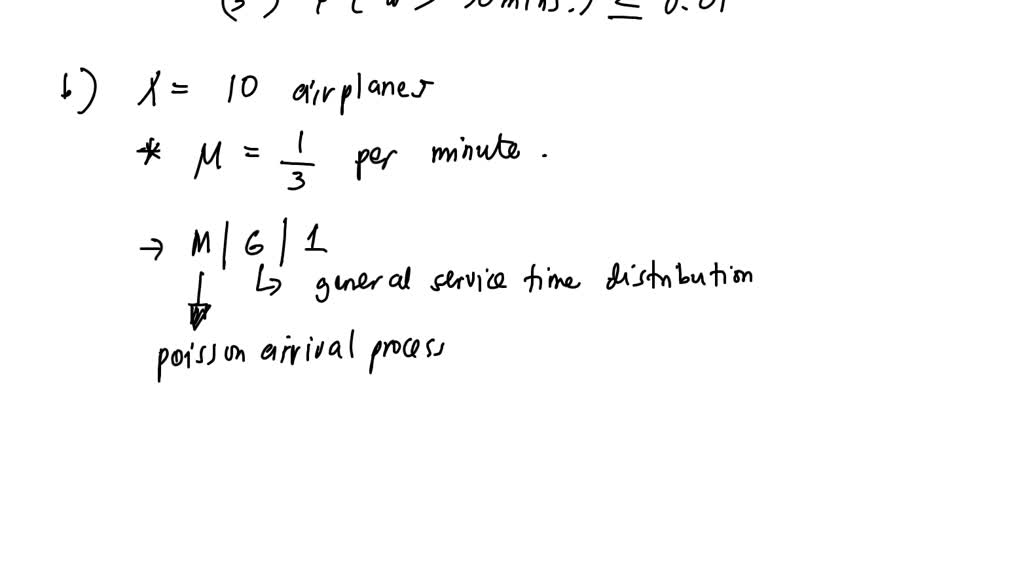 (3) P( W > 30mins.) ≤ 0.01
b) λ = 10 airplanes
* μ = 1/3 per minute.
→ M | G | 1
↳ general service time distribution
poisson arrival process